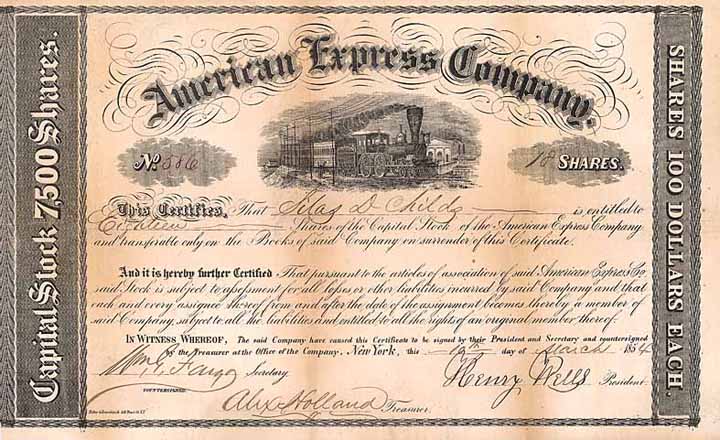 American Express Company.
Capital Stock 7,500 Shares.
SHARES 100 DOLLARS EACH.
No. 386
18 SHARES.
This Certifies, That Silas D Childs is entitled to
Eighteen Shares of the Capital Stock of the American Express Company
and transferable only on the Books of said Company on surrender of this Certificate.
And it is hereby further Certified That pursuant to the articles of association of said American Express Co.
said Stock is subject to assessment for all losses or other liabilities incurred by said Company and that
each and every assignee thereof from and after the date of the assignment becomes thereby a member of
said Company, subject to all the liabilities and entitled to all the rights of an original member thereof.
IN WITNESS WHEREOF, The said Company have caused this Certificate to be signed by their President and Secretary and countersigned
by the Treasurer at the Office of the Company, New York, this day of March 1854
Wm. G. Fargo Secretary.
Henry Wells President.
COUNTERSIGNED.
Alex Holland Treasurer.